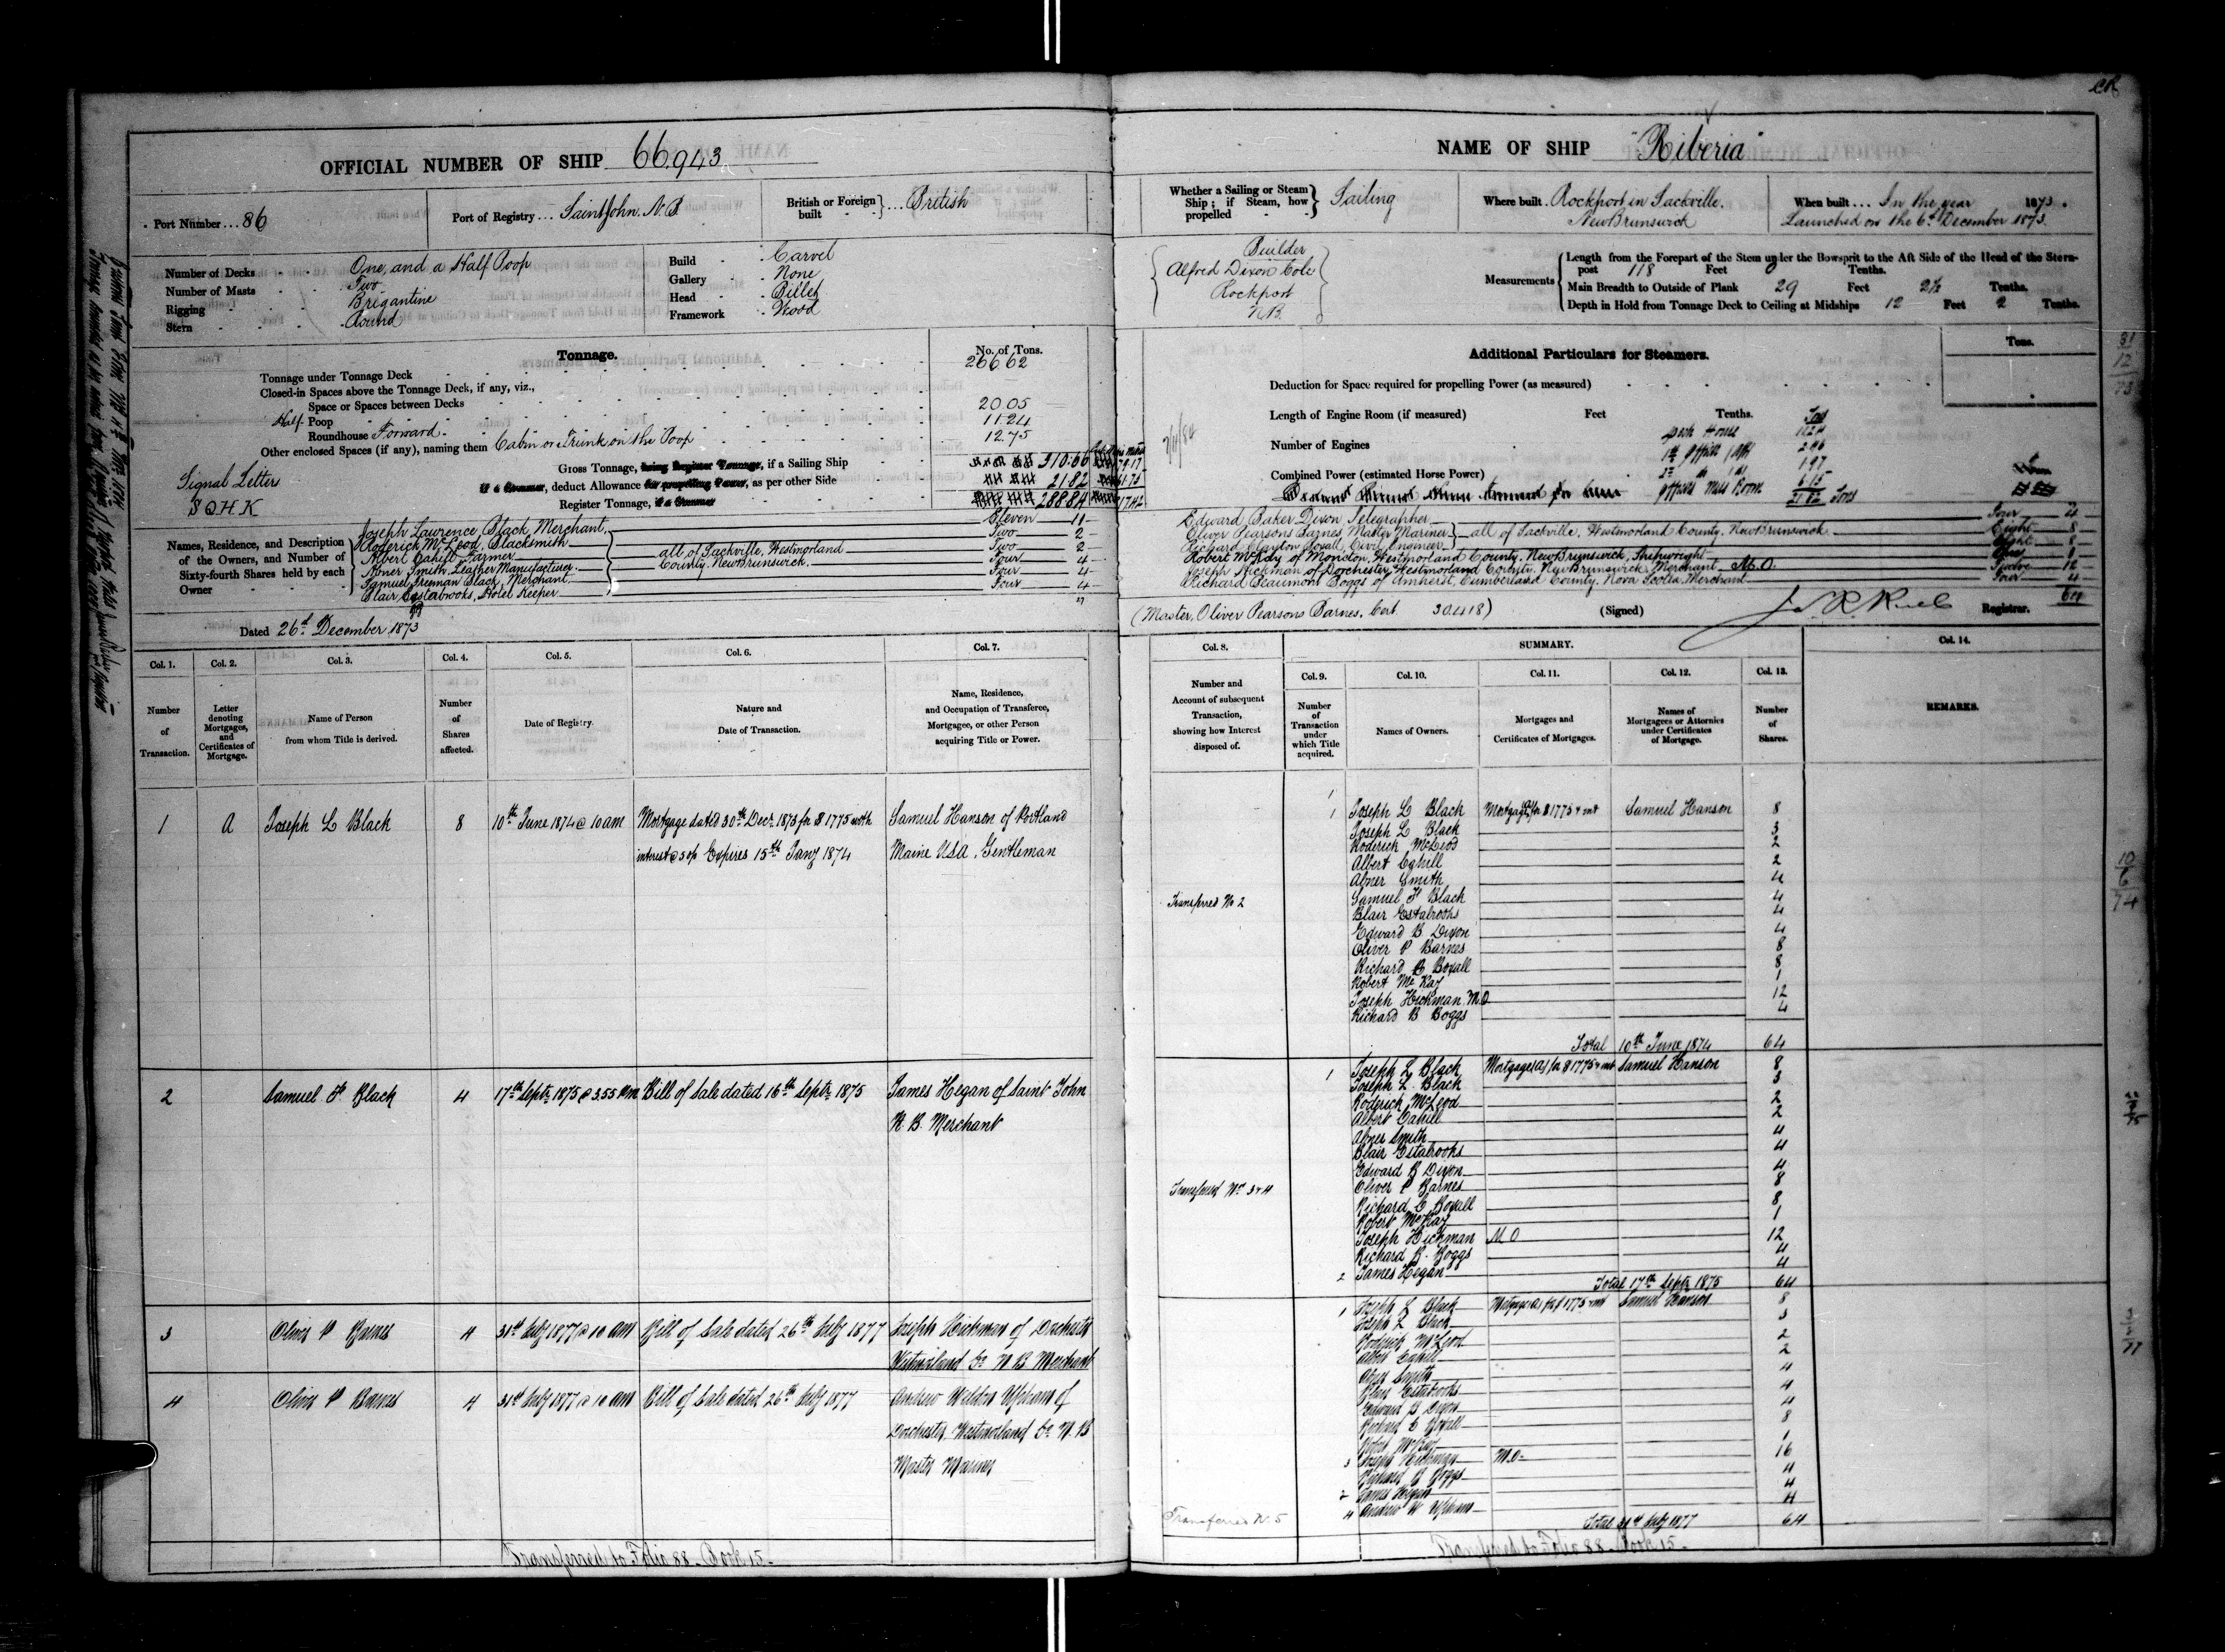 CR
OFFICIAL NUMBER OF SHIP 66,943
Port Number ... 86
Port of Registry ... Saint John, N.B.
British or Foreign built ... British
Number of Decks One, and a Half Poop
Number of Masts Two
Rigging Brigantine
Stern Round
Build Carvel
Gallery None
Head Billet
Framework Wood
Tonnage.
No. of Tons.
Tonnage under Tonnage Deck 266.62
Closed-in Spaces above the Tonnage Deck, if any, viz.,
Space or Spaces between Decks
Half- Poop 20.05
Roundhouse Forward 11.24
Other enclosed Spaces (if any), naming them Cabin or Trunk on the Poop 12.75
Gross Tonnage, being Register Tonnage, if a Sailing Ship 310.66
If a Steamer, deduct Allowance for propelling Power, as per other Side 21.82
Register Tonnage, if a Steamer 288.84
Signal Letters
S Q H K
Names, Residence, and Description of the Owners, and Number of Sixty-fourth Shares held by each Owner
Joseph Lawrence Black, Merchant, Eleven 11
Roderick McLeod, Blacksmith Two 2
Albert Cahill, Farmer Two 2
Abner Smith, Leather Manufacturer Four 4
Samuel Freeman Black, Merchant Four 4
Blair Estabrooks, Hotel Keeper Four 4
all of Sackville, Westmorland
County, New Brunswick
27
Dated 26th December 1873
NAME OF SHIP "Riberia"
Whether a Sailing or Steam Ship; if Steam, how propelled Sailing
Where built Rockport in Sackville,
New Brunswick
When built ... In the year 1873.
Launched on the 6th December 1873.
Builder
Alfred Dixon Cole
Rockport
N.B.
Measurements
Length from the Forepart of the Stem under the Bowsprit to the Aft Side of the Head of the Stern-
post 118 Feet 0 Tenths.
Main Breadth to Outside of Plank 29 Feet Tenths.
Depth in Hold from Tonnage Deck to Ceiling at Midships 12 Feet 2 Tenths.
Additional Particulars for Steamers.
Tons.
Deduction for Space required for propelling Power (as measured)
Length of Engine Room (if measured) Feet Tenths.
Number of Engines
Combined Power (estimated Horse Power)
Deck House 11.24
1st Officer 2.46
1.97
Officers Mess Room 6.15
21.82 Tons
Edward Baker Dixon, Telegrapher Four 4
Oliver Pearsons Barnes, Master Mariner Eight 8
Richard Boxall, Civil Engineer Eight 8
all of Sackville, Westmorland County, New Brunswick
Robert McKay of Moncton, Westmorland County, New Brunswick, Shipwright One 1
Joseph Hickman of Dorchester, Westmorland County, New Brunswick, Merchant, M.O. Twelve 12
Richard Beaumont Boggs of Amherst, Cumberland County, Nova Scotia, Merchant Four 4
64
(Master, Oliver Pearsons Barnes, Cert. 30.418)
(Signed)
Registrar.
Col. 1. Number of Transaction.
Col. 2. Letter denoting Mortgages, and Certificates of Mortgage.
Col. 3. Name of Person from whom Title is derived.
Col. 4. Number of Shares affected.
Col. 5. Date of Registry.
Col. 6. Nature and Date of Transaction.
Col. 7. Name, Residence, and Occupation of Transferee, Mortgagee, or other Person acquiring Title or Power.
Col. 8. Number and Account of subsequent Transaction, showing how Interest disposed of.
SUMMARY.
Col. 9. Number of Transaction under which Title acquired.
Col. 10. Names of Owners.
Col. 11. Mortgages and Certificates of Mortgages.
Col. 12. Names of Mortgagees or Attornies under Certificates of Mortgage.
Col. 13. Number of Shares.
Col. 14. REMARKS.
1 A Joseph L Black 8 10th June 1874 @ 10 am Mortgage dated 30th Decr 1873 for $1775 with
interest @ Expires 15th Jany 1874
Samuel Hanson of Portland
Maine U.S.A, Gentleman
Transferred No 2
1 Joseph L Black Mortgage (A) for $1775 & int Samuel Hanson 8
Joseph L Black 3
Roderick McLeod 2
Albert Cahill 2
Abner Smith 4
Samuel F Black 4
Blair Estabrooks 4
Edward B Dixon 4
Oliver P Barnes 8
Richard C Boxall 8
Robert McKay 1
Joseph Hickman M.O 12
Richard B Boggs 4
Total 10th June 1874 64
2 Samuel F. Black 4 17th Septr 1875 @ 3.55 PM Bill of Sale dated 16th Septr 1875
James Hegan of Saint John
N. B. Merchant
Transferred Nos 3 & 4
1 Joseph L Black Mortgage (A) for $1775 & int Samuel Hanson 8
Joseph L. Black 3
Roderick McLeod 2
Albert Cahill 2
Abner Smith 4
Blair Estabrooks 4
Edward B Dixon 4
Oliver P Barnes 8
Richard C Boxall 8
Robert McKay 1
Joseph Hickman M O 12
Richard B. Boggs 4
2 James Hegan 4
Total 17th Septr 1875 64
3 Oliver P Barnes 4 31st July 1877 @ 10 am Bill of Sale dated 26th July 1877
Joseph Hickman of Dorchester
Westmorland Co N B Merchant
4 Oliver P Barnes 4 31st July 1877 @ 10 am Bill of Sale dated 26th July 1877
Andrew Weldon Upham of
Dorchester, Westmorland Co N.B
Master Mariner
Transferred No. 5
1 Joseph L Black Mortgage (A) for $1775 & int Samuel Hanson 8
Joseph L Black 3
Roderick McLeod 2
Albert Cahill 2
Abner Smith 4
Blair Estabrooks 4
Edward B Dixon 4
Richard C Boxall 8
Robert McKay 1
3 Joseph Hickman M.O. 16
Richard B Boggs 4
2 James Hegan 4
4 Andrew W Upham 4
Total 31st July 1877 64
Transferred to Folio 88 - Book 15 -
Transferred to Folio 88 - Book 15 -